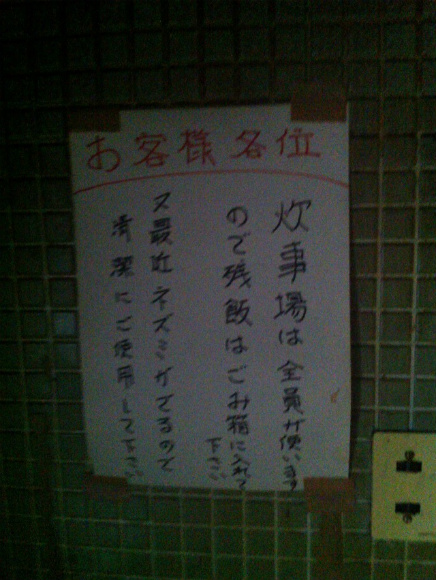 お客様各位
炊事場は全員が使います
ので残飯はごみ箱に入れて下さい
又最近ネズミがでるので
清潔にご使用して下さい